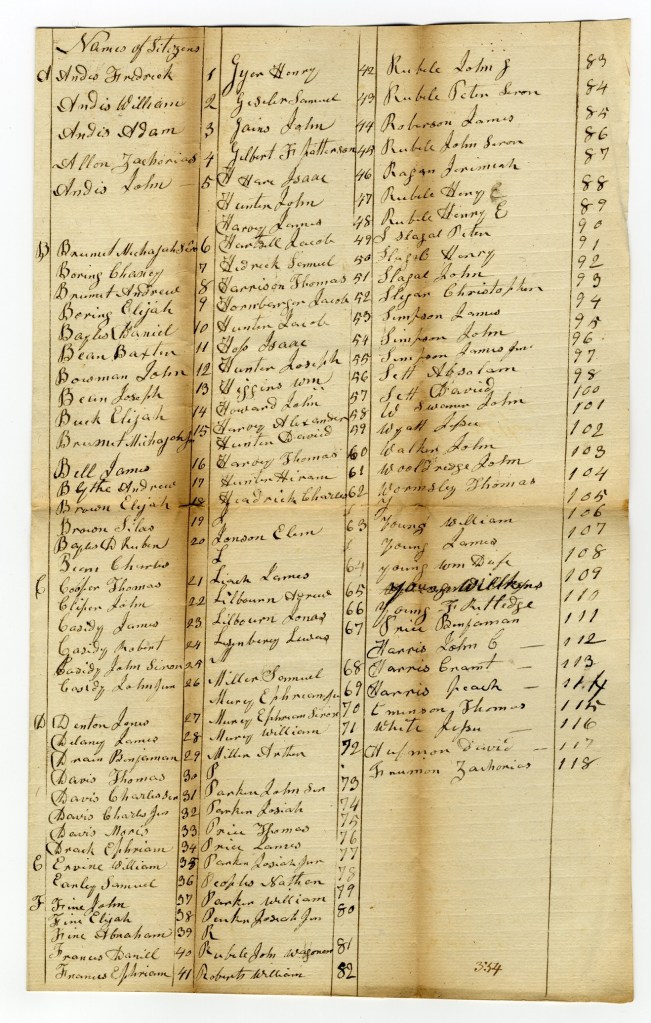 Names of Citizens
A Andis Fredrick 1
Andis William 2
Andis Adam 3
Allon Zachorias 4
Andis John 5
B Brumet Michajah Ser 6
Boring Chaney 7
Brumet Andrew 8
Boring Elijah 9
Bayles Daniel 10
Bean Baxter 11
Bowman John 12
Bein Joseph 13
Buck Elijah 14
Brumet Michajah Jr 15
Bell James 16
Blythe Andrew 17
Brown Elijah 18
Brown Silas 19
Bayles D Rubin 20
Bean Charles
C Cooper Thomas 21
Cliper John 22
Casidy James 23
Casidy Robert 24
Casidy John Seron 25
Casidy John Jur 26
D Denton Jones 27
Dulany James 28
Drain Benjaman 29
Davis Thomas 30
Davis Charles Ser 31
Davis Charls Jur 32
Davis Moris 33
Drach Ephriam 34
E Ervine William 35
Earley Samuel 36
F Fine John 37
Fine Elijah 38
Fine Abraham 39
Francis Daniel 40
Frances Ephriam 41
Gyer Henry 42
Gesler Samuel 43
Gains John 44
Gilbert F Patterson 45
H Hare Isaac 46
Hunter John 47
Harvy James 48
Hartsell Jacob 49
Hedrick Samuel 50
Harrison Thomas 51
Hornberger Jacob 52
Hunter Jacob 53
Hoss Isaac 54
Hunter Joseph 55
Higgins Wm 56
Howard John 57
Harvy Alexander 58
Hunter David 59
Harvy Thomas 60
Hunter Hiram 61
Headrick Charles 62
J
Jonson Elim 63
L
Leach James 64
Lilbourn Andrew 65
Lilbourn Jonas 66
Lynberey Lewas 67
M
Miller Samuel 68
Murey Ephriam Ju 69
Murey Ephriam Seron 70
Mury William 71
Miller Arther 72
P
Parker John Ser 73
Parker Josiah 74
Price Thomas 75
Price James 76
Parker Josiah Jur 77
Peoples Nathan 78
Parker William 79
Parker Josiah Jur 80
R
Ruble John Wagoner 81
Roberts William 82
Ruble John J 83
Ruble Peter Seron 84
Roberson James 85
Ruble John Seron 86
Ragan Jerimiah 87
Ruble Henry E 88
Ruble Henry E 89
S Slagal Peter 90
Slagle Henry 91
Slagal John 92
Sliger Christopher 93
Simpson James 94
Simpson John 95
Simpson James Jur 96
Sett Absalam 97
Sett David 98
W Swaner John 100
Wyatt Jesse 101
Walker John 102
Wooldredge John 103
Wormsley Thomas 104
Y
Young William 105
Young James 106
young Wm 107
108
Young F Rutledge 109
Price Benjaman 110
Harris John C 111
Harris Grant 112
Harris 113
Eminson Thomas 114
White Jesse 115
Hufmon David 116
Frumon Zachorias 117
118
334